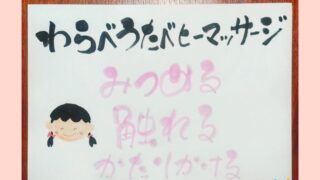 わらべうたベビーマッサージ
みつめる
触れる
かたりかける